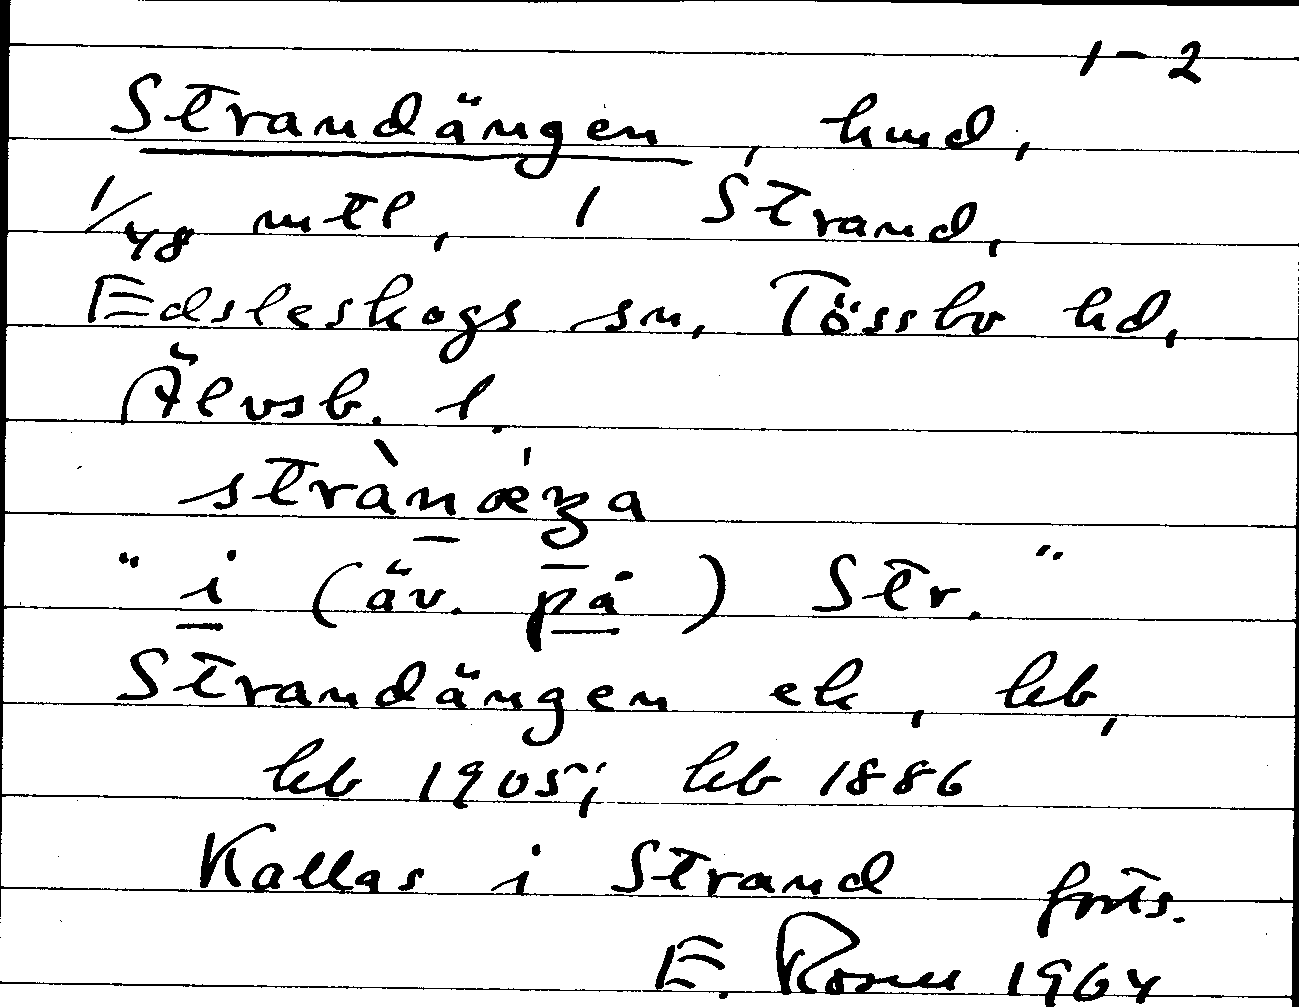 1-2
Strandängen, hmd,
1/48 mtl, 1 Strand,
Edsleskogs sn, Tössbo hd,
Älvsb. l.
"i (äv. på) Str."
Strandängen ek, kb,
kb 1905; kb 1886
Kallas i Strand forts.
E. Rosell 1964